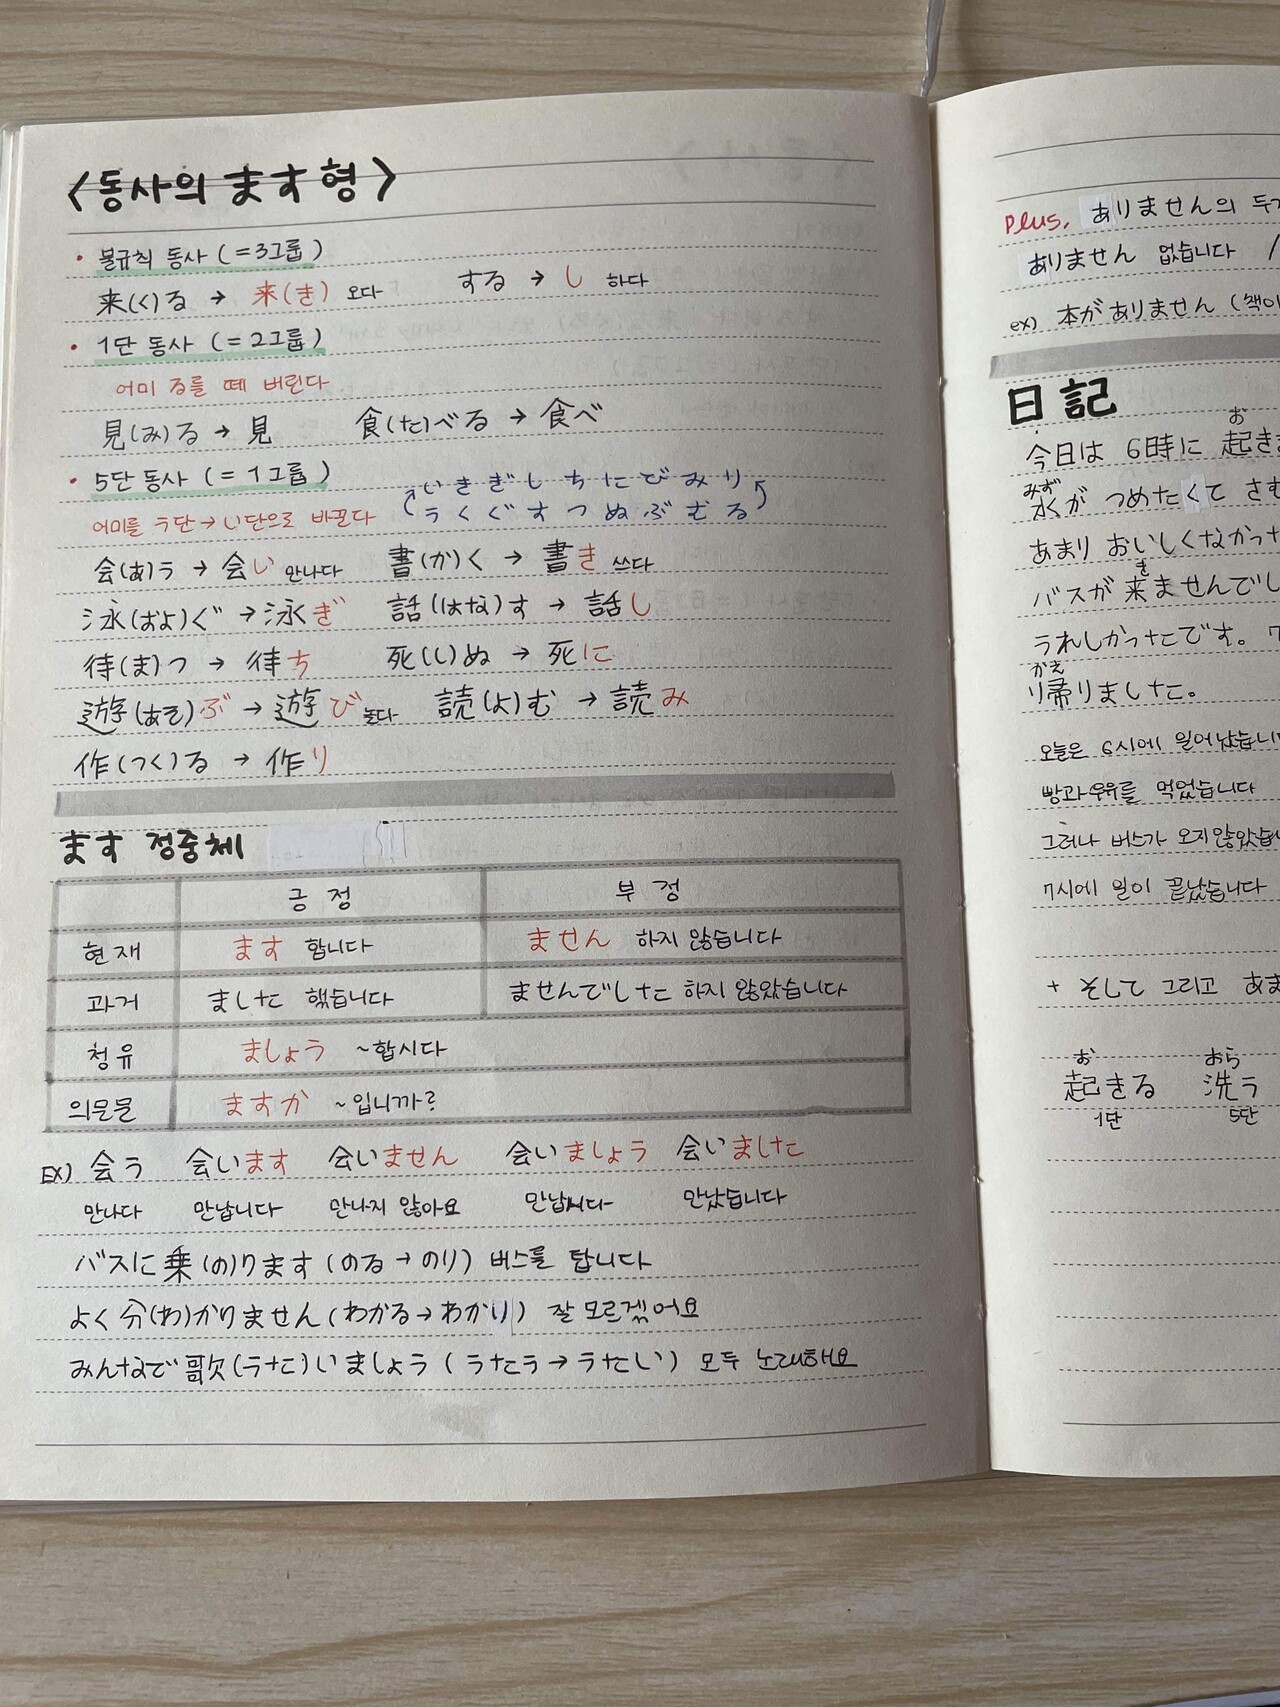 <동사의 ます형>
• 불규칙 동사 (=3그룹)
来(く)る → 来(き) 오다 する → し 하다
• 1단 동사 (=2그룹)
어미 る를 떼 버린다
見(み)る → 見 食(た)べる → 食べ
• 5단 동사 (=1그룹)
いきぎしちにびみり
어미를 う단→い단으로 바꾼다 うくぐすつぬぶむる
会(あ)う → 会い 만나다 書(か)く → 書き 쓰다
泳(およ)ぐ → 泳ぎ 話(はな)す → 話し
待(ま)つ → 待ち 死(し)ぬ → 死に
遊(あそ)ぶ → 遊び 놀다 読(よ)む → 読み
作(つく)る → 作り
ます 정중체
긍정 부정
현재 ます 합니다 ません 하지 않습니다
과거 ました 했습니다 ませんでした 하지 않았습니다
청유 ましょう ~합시다
의문문 ますか ~입니까?
EX) 会う 会います 会いません 会いましょう 会いました
만나다 만납니다 만나지 않아요 만났습니다
バスに乗(の)ります (のる→のり) 버스를 탑니다
よく分(わ)かりません (わかる→わかり) 잘 모르겠어요
みんなで歌(うた)いましょう (うたう→うたい) 모두 노래해요
Plus, ありません의
ありません 없습니다 /
ex) 本がありません (책이
日記
お
今日は 6時に 起き
みず
水が つめたくて さむ
あまり おいしくなかった
き
バスが 来ませんでし
うれしかったです。7
かえ
り帰りました。
오늘은 6시에 일어났습니
빵과 우유를 먹었습니다
그러나 버스가 오지 않았습
7시에 일이 끝났습니다
+ そして 그리고 あま
お おら
起きる 洗う
1단 5단